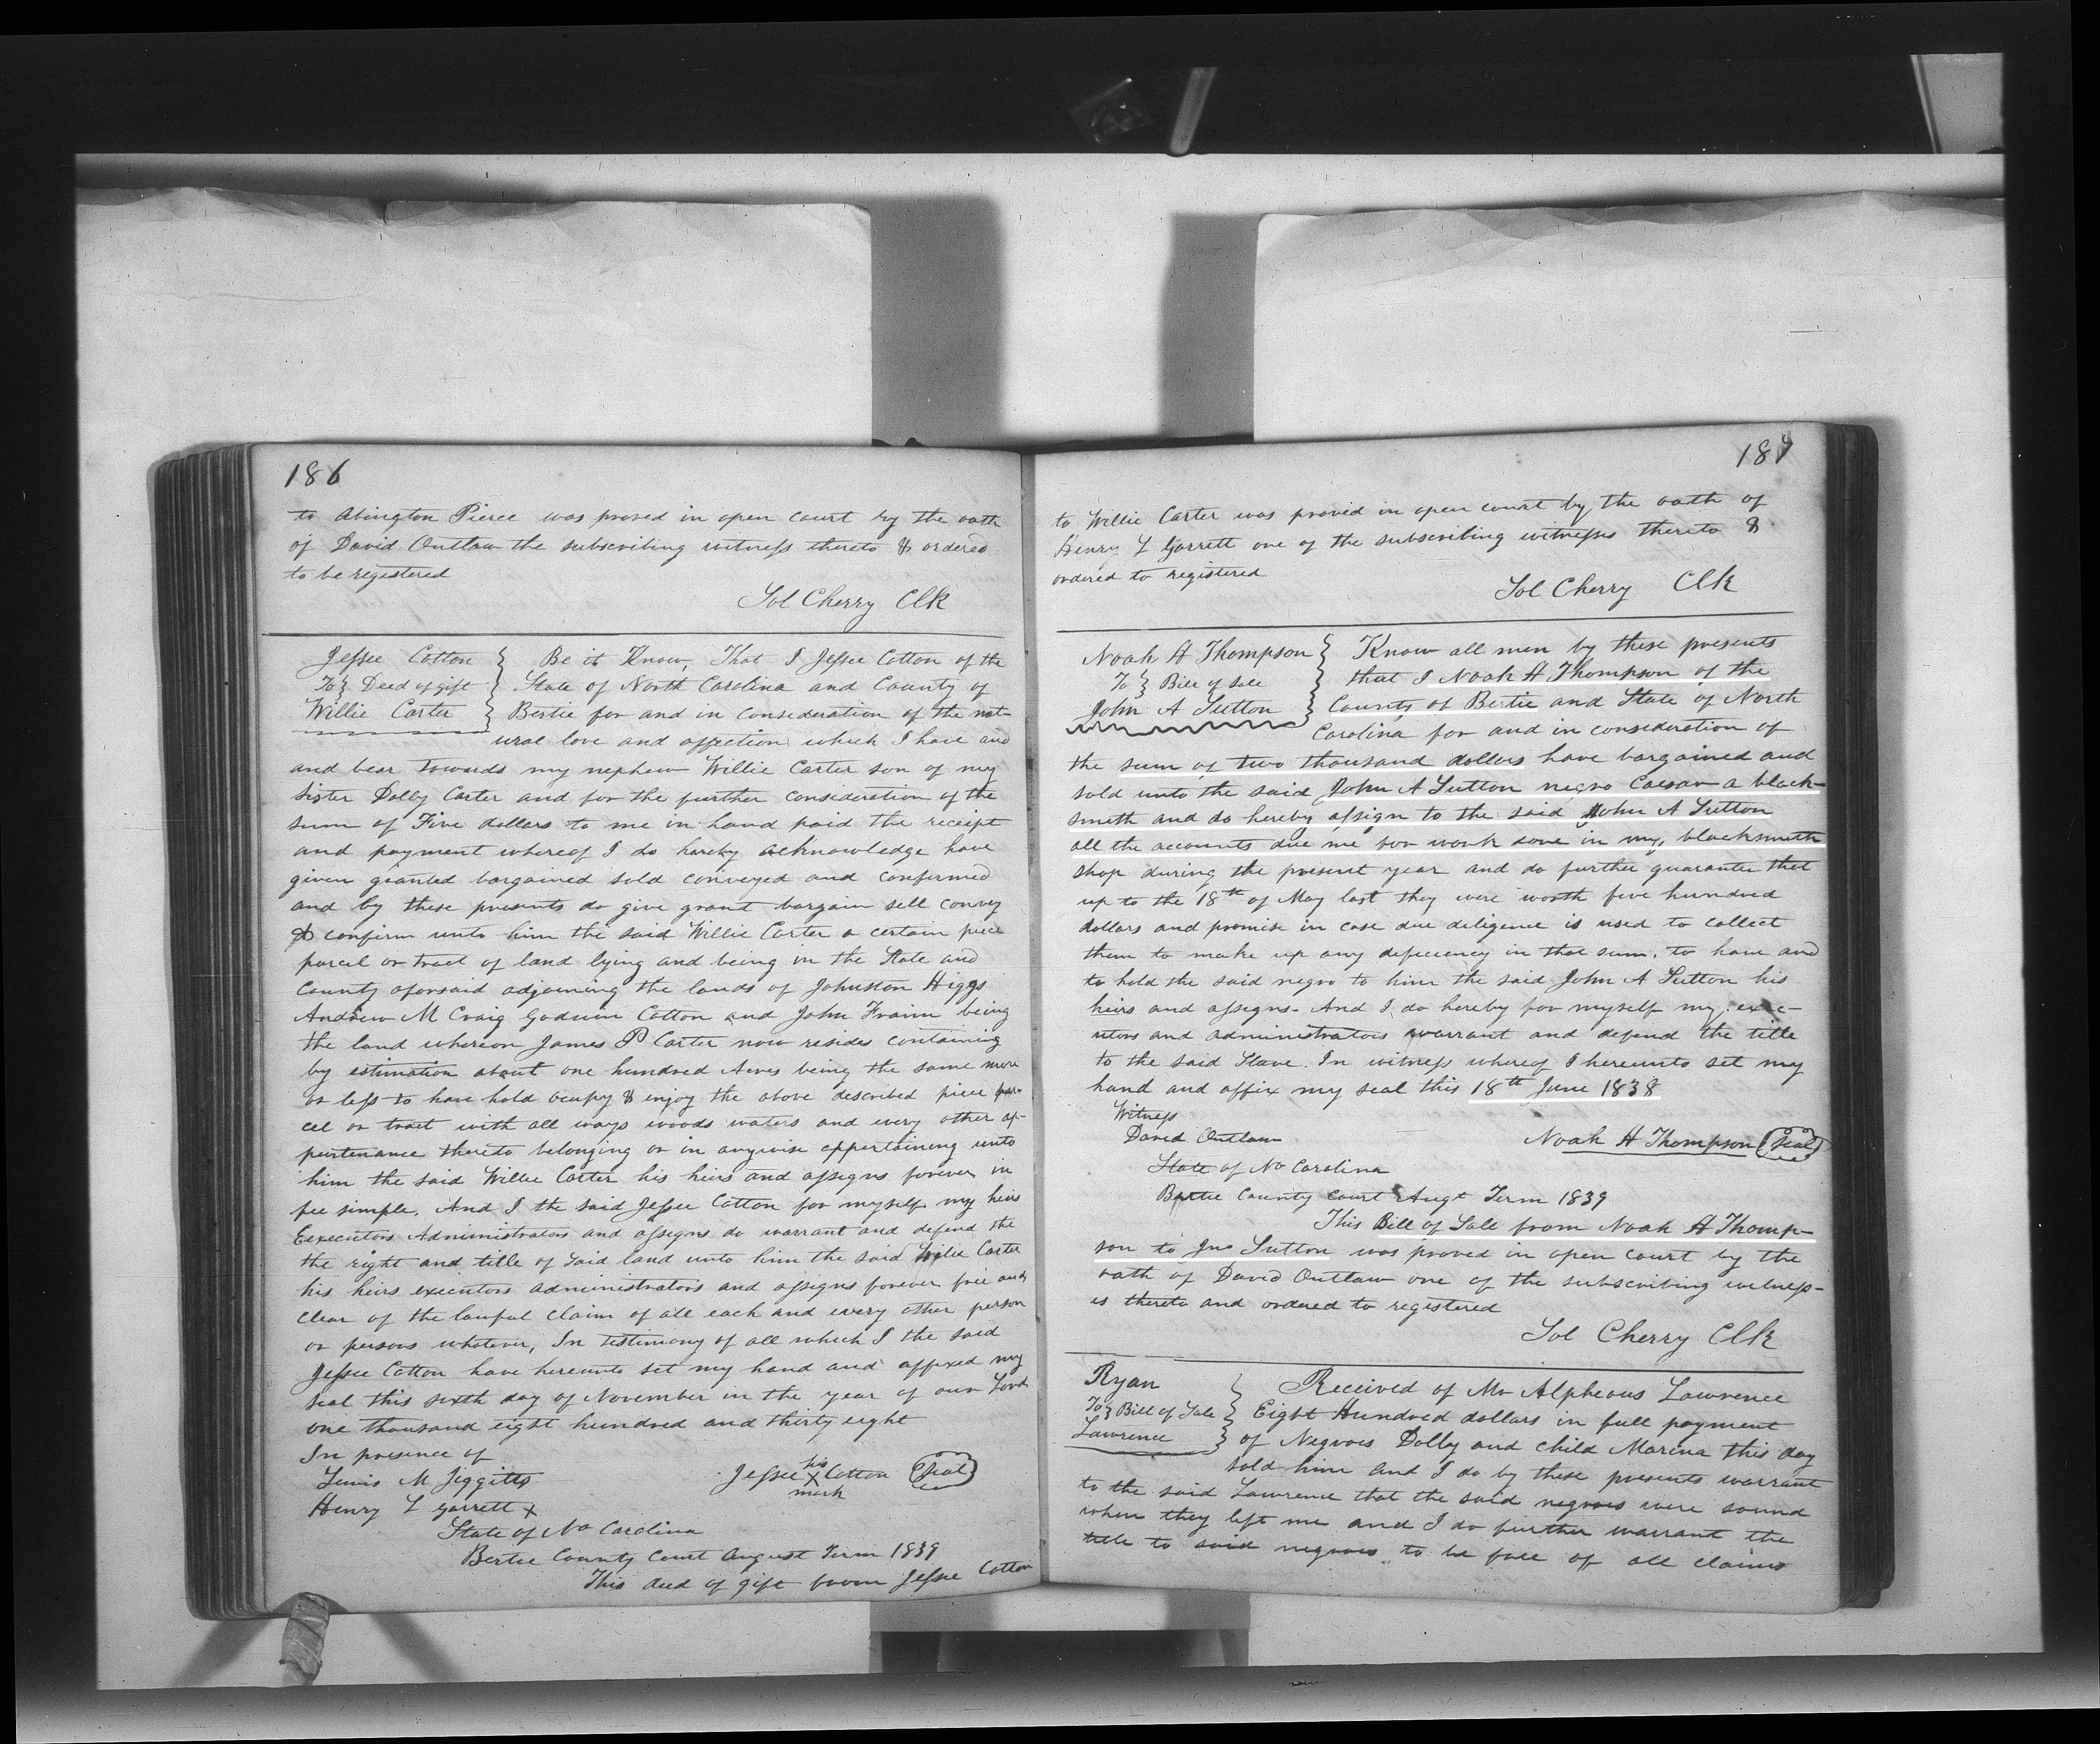 186
to Abington Pierce was proved in open court by the oath
of David Outlaw the subscribing witness thereto & ordered
to be registered
Sol Cherry Clk
Jessee Cotton
To } Deed of gift
Willie Carter
Be it Know, That I Jessee Cotton of the
State of North Carolina and County of
Bertie for and in consideration of the nat-
ural love and affection which I have and
and bear towards my nephew Willie Carter son of my
Sister Dolly Carter and for the further consideration of the
sum of Five dollars to me in hand paid the receipt
and payment whereof I do hereby acknowledge have
given granted bargained sold conveyed and confirmed
and by these presents do give grant bargain sell convey
& confirm unto him the said Willie Carter a certain piece
parcel or tract of land lying and being in the State and
County aforsaid adjoining the lands of Johnston Higgs
Andrew M Craig Godwin Cotton and John Fraim being
the land whereon James P Carter now resides containing
by estimation about one hundred Acres being the same more
or less to have hold ocupy & enjoy the above described piece par-
cel or tract with all ways woods waters and every other ap-
purtenance thereto belonging or in anywise appertaining unto
him the said Willie Carter his heirs and assigns forever in
fee simple. And I the said Jessee Cotton for myself my heirs
Eexecutors Administrators and assigns do warrant and defend the
the right and title of said land unto him the said Willie Carter
his heirs executors administrators and assigns forever free and
clear of the lawful claim of all each and every other person
or persons whatever, In testimony of all which I the said
Jessee Cotton have hereunto set my hand and affixed my
seal this sixth day of November in the year of our Lord
one thousand eight hundred and thirty eight
In presence of
Lewis M Jiggitts
Henry L Garrett X
Jessee his X mark Cotton (Seal)
State of No Carolina
Bertie County Court August Term 1839
This deed of gift from Jessee Cotton
187
to Willie Carter was provid in open court by the oath of
Henry L Garrett one of the subscribing witnesses thereto &
ordered to registered
Sol Cherry Clk
Noah H Thompson
To } Bill of Sale
John A Sutton
Know all men by these presents
that I Noah H Thompson of the
County of Bertie and State of North
Carolina for and in consideration of
the sum of two thousand dollars have bargained and
sold unto the said John A Sutton negro Caesar a black-
smith and do hereby assign to the said John A Sutton
all the accounts due me for work done in my blacksmith
shop during the present year and do further guarantee that
up to the 18th of May last they were worth five hundred
dollars and promise in case due diligence is used to collect
them to make up any deficiency in that sum, to have and
to hold the said negro to him the said John A Sutton his
heirs and assigns- And I do hereby for myself my exec-
utors and administrators warrant and defend the title
to the said Slave. In witness whereof I hereunto set my
hand and affix my seal this 18th June 1838
Witness
David Outlaw
Noah H Thompson (Seal)
State of No Carolina
Bertie County Court Augt Term 1839
This Bill of Sale from Noah H Thomp-
son to Jno Sutton was proved in open court by the
oath of David Outlaw one of the subscribing witness-
es thereto and ordered to registered
Sol Cherry Clk
Ryan
To } Bill of Sale
Lawrence
Received of Mr Alpheous Lawrence
Eight Hundred dollars in full payment
of Negroes Dolly and child Marina this day
sold him and I do by these presents warrant
to the said Lawrence that the said negroes were sound
when they left me and I do further warrant the
title to said negroes to be free of all claims